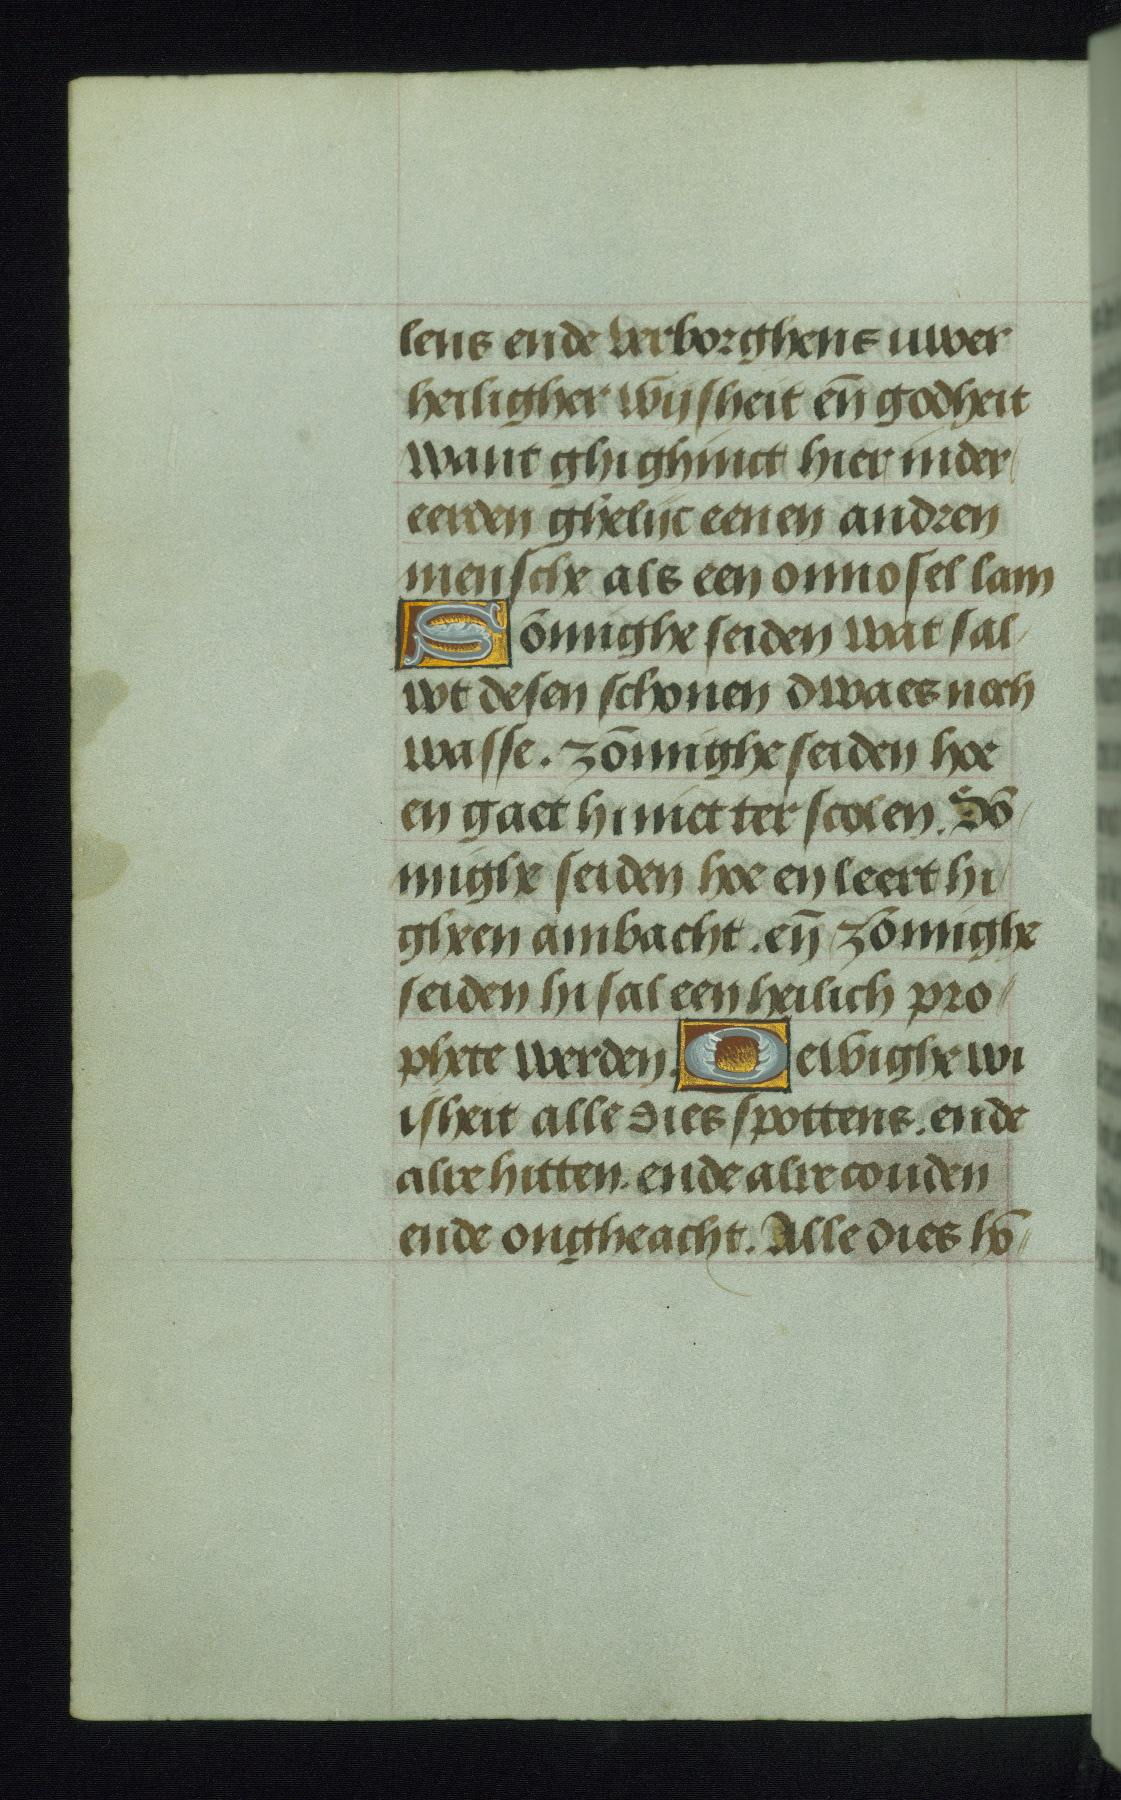 lens ende verborghens uwer
heiligher wijsheit en̄ godheit
want ghi ghinct hier in der
eerden ghelijc eenen andren
mensche als een onnosel lam
Sōnnighe seiden wat sal
wt desen schonen dwaes noch
wasse. zōnnighe seiden hoe
en gaet hi niet ter scolen. Sō
nnighe seiden hoe en leert hi
gheen ambacht. en̄ zōnnighe
seiden hi sal een heilich pro
phete werden. O ewighe wi
isheit alle dies spottens. ende
alre hitten. ende alre couden
ende ongheacht. Alle dies